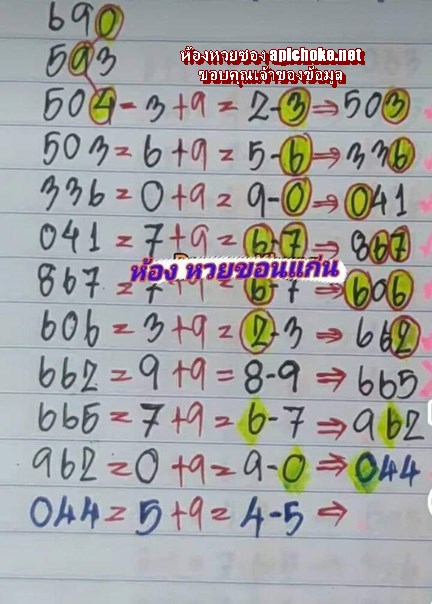 690
593
ห้องหวยซอง apichoke.net
ขอบคุณเจ้าของข้อมูล
504 = 3 + 9 = 2-3 ⇒ 503
503 = 6 + 9 = 5-6 ⇒ 336
336 = 0 + 9 = 9-0 ⇒ 041
041 = 7 + 9 = 6-7 ⇒ 867
ห้อง หวยขอนแก่น
867 = 7 + 9 = 6-7 ⇒ 606
606 = 3 + 9 = 2-3 ⇒ 662
662 = 9 + 9 = 8-9 ⇒ 665
665 = 7 + 9 = 6-7 ⇒ 962
962 = 0 + 9 = 9-0 ⇒ 044
044 = 5 + 9 = 4-5 ⇒